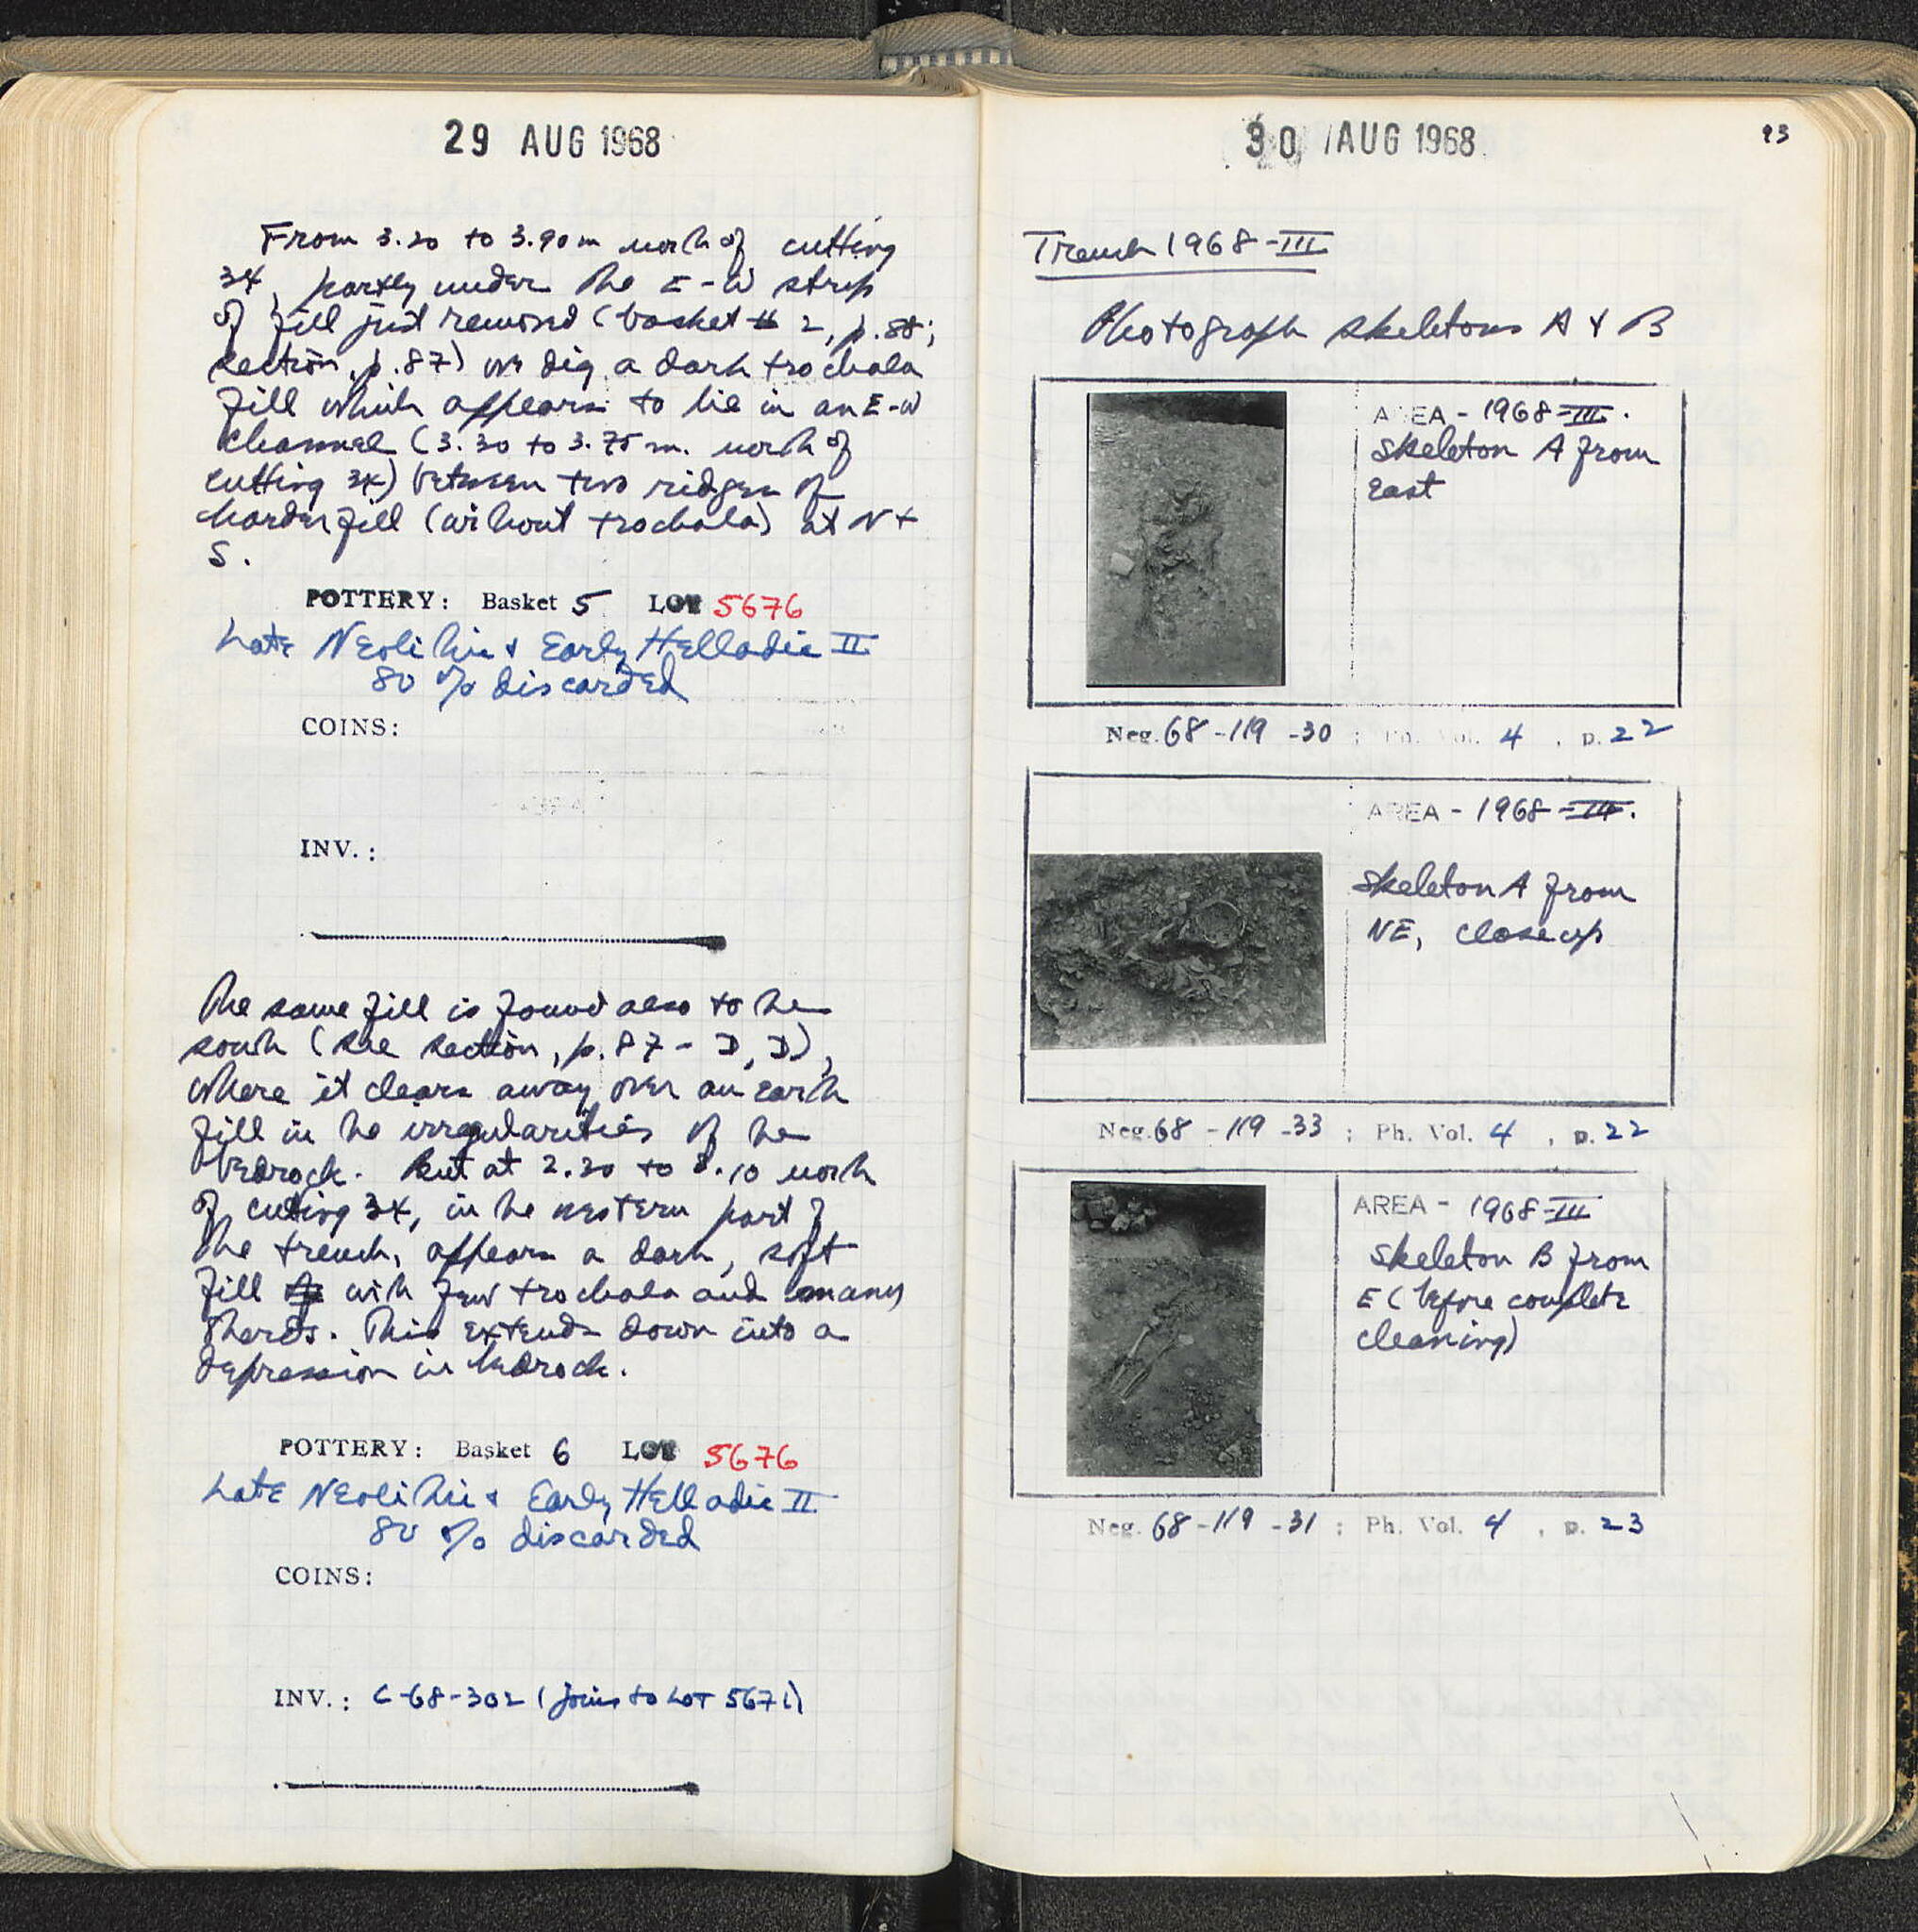 29 AUG 1968
From 3.20 to 3.90 m north of cutting
34, partly under the E-W strip
of fill just removed (basket # 2, p. 88;
section, p. 87) we dig a dark trochala
fill which appears to lie in an E-W
channel (3.30 to 3.75 m. north of
cutting 34) between two ridges of
harder fill (without trochala) at N +
S.
POTTERY: Basket 5 LOT 5676
Late Neolithic & Early Helladic II
80 % discarded
COINS:
INV.:
The same fill is found also to the
south (see section, p. 87 - D, D),
where it clears away over an earth
fill in the irregularities of the
bedrock. But at 2.20 to 3.10 north
of cutting 34, in the western part of
the trench, appears a dark, soft
fill with few trochala and many
sherds. This extends down into a
depression in bedrock.
POTTERY: Basket 6 LOT 5676
Late Neolithic & Early Helladic II
80 % discarded
COINS:
INV.: C-68-302 (joins to Lot 5671)
30 AUG 1968
93
Trench 1968-III
Photograph skeletons A & B
AREA - 1968-III.
Skeleton A from
East
Neg. 68-119-30 ; Ph. Vol. 4 , p. 22
AREA - 1968-III.
Skeleton A from
NE, closeup
Neg. 68-119-33 ; Ph. Vol. 4 , p. 22
AREA - 1968-III
Skeleton B from
E (before complete
cleaning)
Neg. 68-119-31 ; Ph. Vol. 4 , p. 23